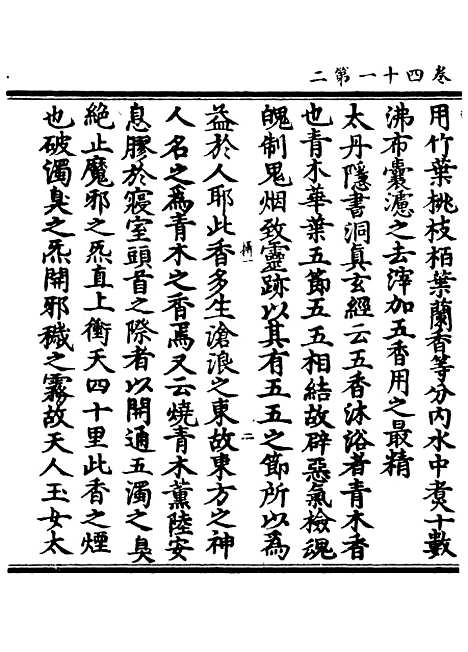 卷四十一第二
用竹葉桃枝栢葉蘭香等分內水中煑十數
沸布囊濾之去滓加五香用之最精
太丹隱書洞眞玄經云五香沐浴者青木香
也青木華葉五節五五相結故辟惡氣檢魂
魄制鬼烟致靈跡以其有五五之節所以爲
二
益於人耶此香多生滄浪之東故東方之神
人名之爲青木之香焉又云燒青木薰陸安
息膠於寢室頭首之際者以開通五濁之臭
絕止魔邪之炁直上衝天四十里此香之煙
也破濁臭之炁開邪穢之霧故天人玉女太